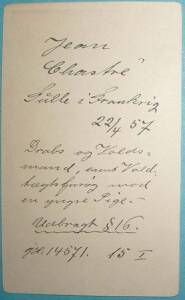 Jean
Chastré
Lülle i Frankrig
22/4 57
Drabs og Volds-
mand, samt Vold-
tægtsforsøg mod
en yngre Pige.
Udbragt § 16.
14571. 15 I